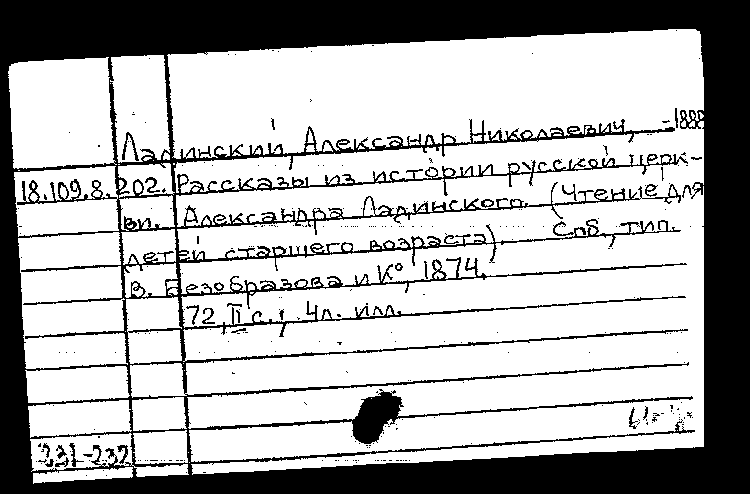 Ладинский, Александр Николаевич, -1888
18.109.8.202. Рассказы из истории русской церк-
ви. Александра Ладинского. (Чтение для
детей старшего возраста). Спб., тип.
В. Безобразова и К°, 1874.
72, II с.; 4л. илл.
231-232